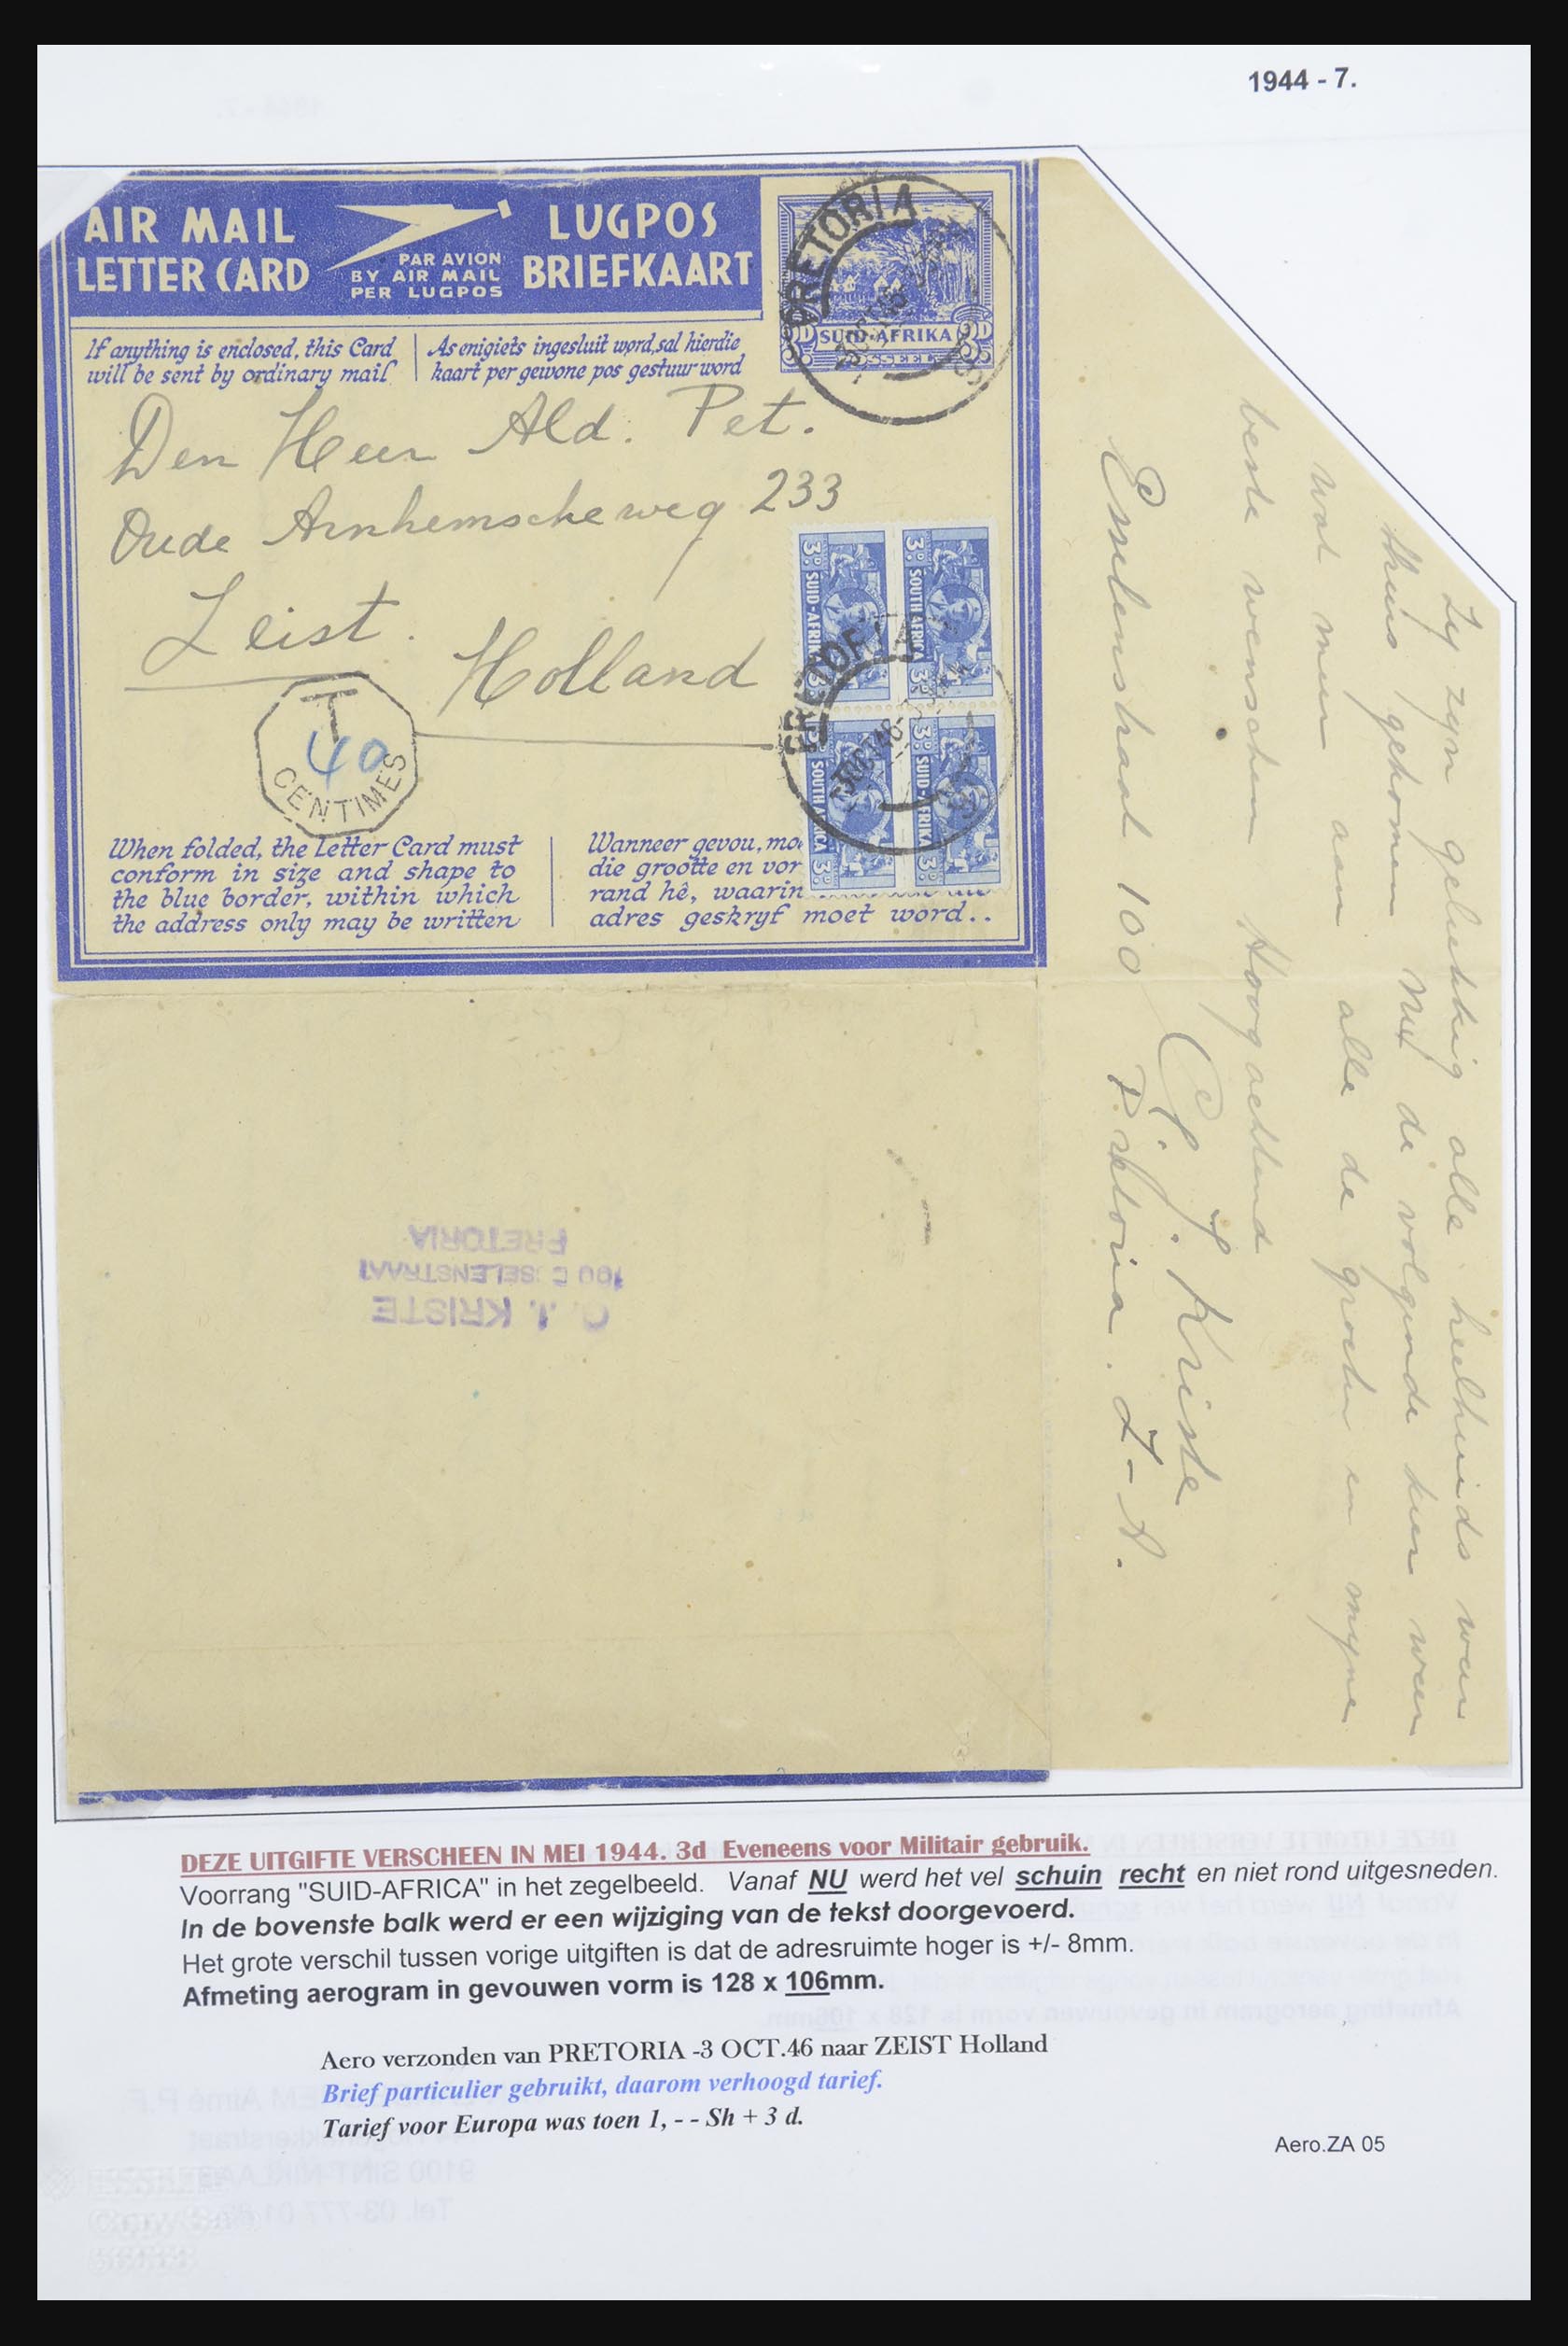 1944 - 7.
AIR MAIL
LETTER CARD
PAR AVION
BY AIR MAIL
PER LUGPOS
LUGPOS
BRIEFKAART
PRETORIA
SUID-AFRIKA
POSSEËL
If anything is enclosed, this Card
will be sent by ordinary mail
As enigiets ingesluit word, sal hierdie
kaart per gewone pos gestuur word
Den Heer Ald. Pet.
Oude Arnhemscheweg 233
Zeist.
Holland
T
40
CENTIMES
3D SUID-AFRIKA 3D
3D SOUTH AFRICA 3D
3D SOUTH AFRICA 3D
3D SUID-AFRIKA 3D
3 OCT 46
When folded, the Letter Card must
conform in size and shape to
the blue border, within which
the address only may be written
Wanneer gevou, mo
die grootte en vor
rand hê, waarin
adres geskryf moet word..
Zy zyn gelukkig alle heelhuids weer
thuis gekomen Met de volgende keer weer
wat meer aan alle de groeten en myne
beste wenschen Hoogachtend
C. J. Kriste
Esselenstraat 100 Pretoria. Z-A.
C. J. KRISTE
100 ESSELENSTRAAT
PRETORIA
DEZE UITGIFTE VERSCHEEN IN MEI 1944. 3d Eveneens voor Militair gebruik.
Voorrang "SUID-AFRICA" in het zegelbeeld. Vanaf NU werd het vel schuin recht en niet rond uitgesneden.
In de bovenste balk werd er een wijziging van de tekst doorgevoerd.
Het grote verschil tussen vorige uitgiften is dat de adresruimte hoger is +/- 8mm.
Afmeting aerogram in gevouwen vorm is 128 x 106mm.
Aero verzonden van PRETORIA -3 OCT.46 naar ZEIST Holland
Brief particulier gebruikt, daarom verhoogd tarief.
Tarief voor Europa was toen 1, - - Sh + 3 d.
Aero.ZA 05